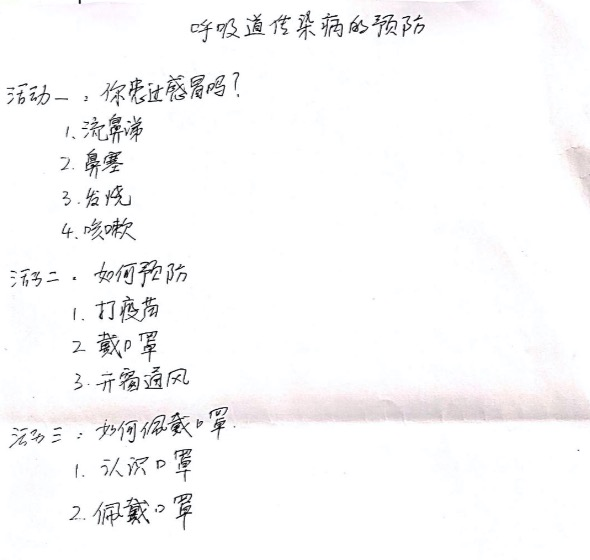 呼吸道传染病的预防
活动一：你患过感冒吗？
1. 流鼻涕
2. 鼻塞
3. 发烧
4. 咳嗽
活动二：如何预防
1. 打疫苗
2. 戴口罩
3. 开窗通风
活动三：如何佩戴口罩.
1. 认识口罩
2. 佩戴口罩